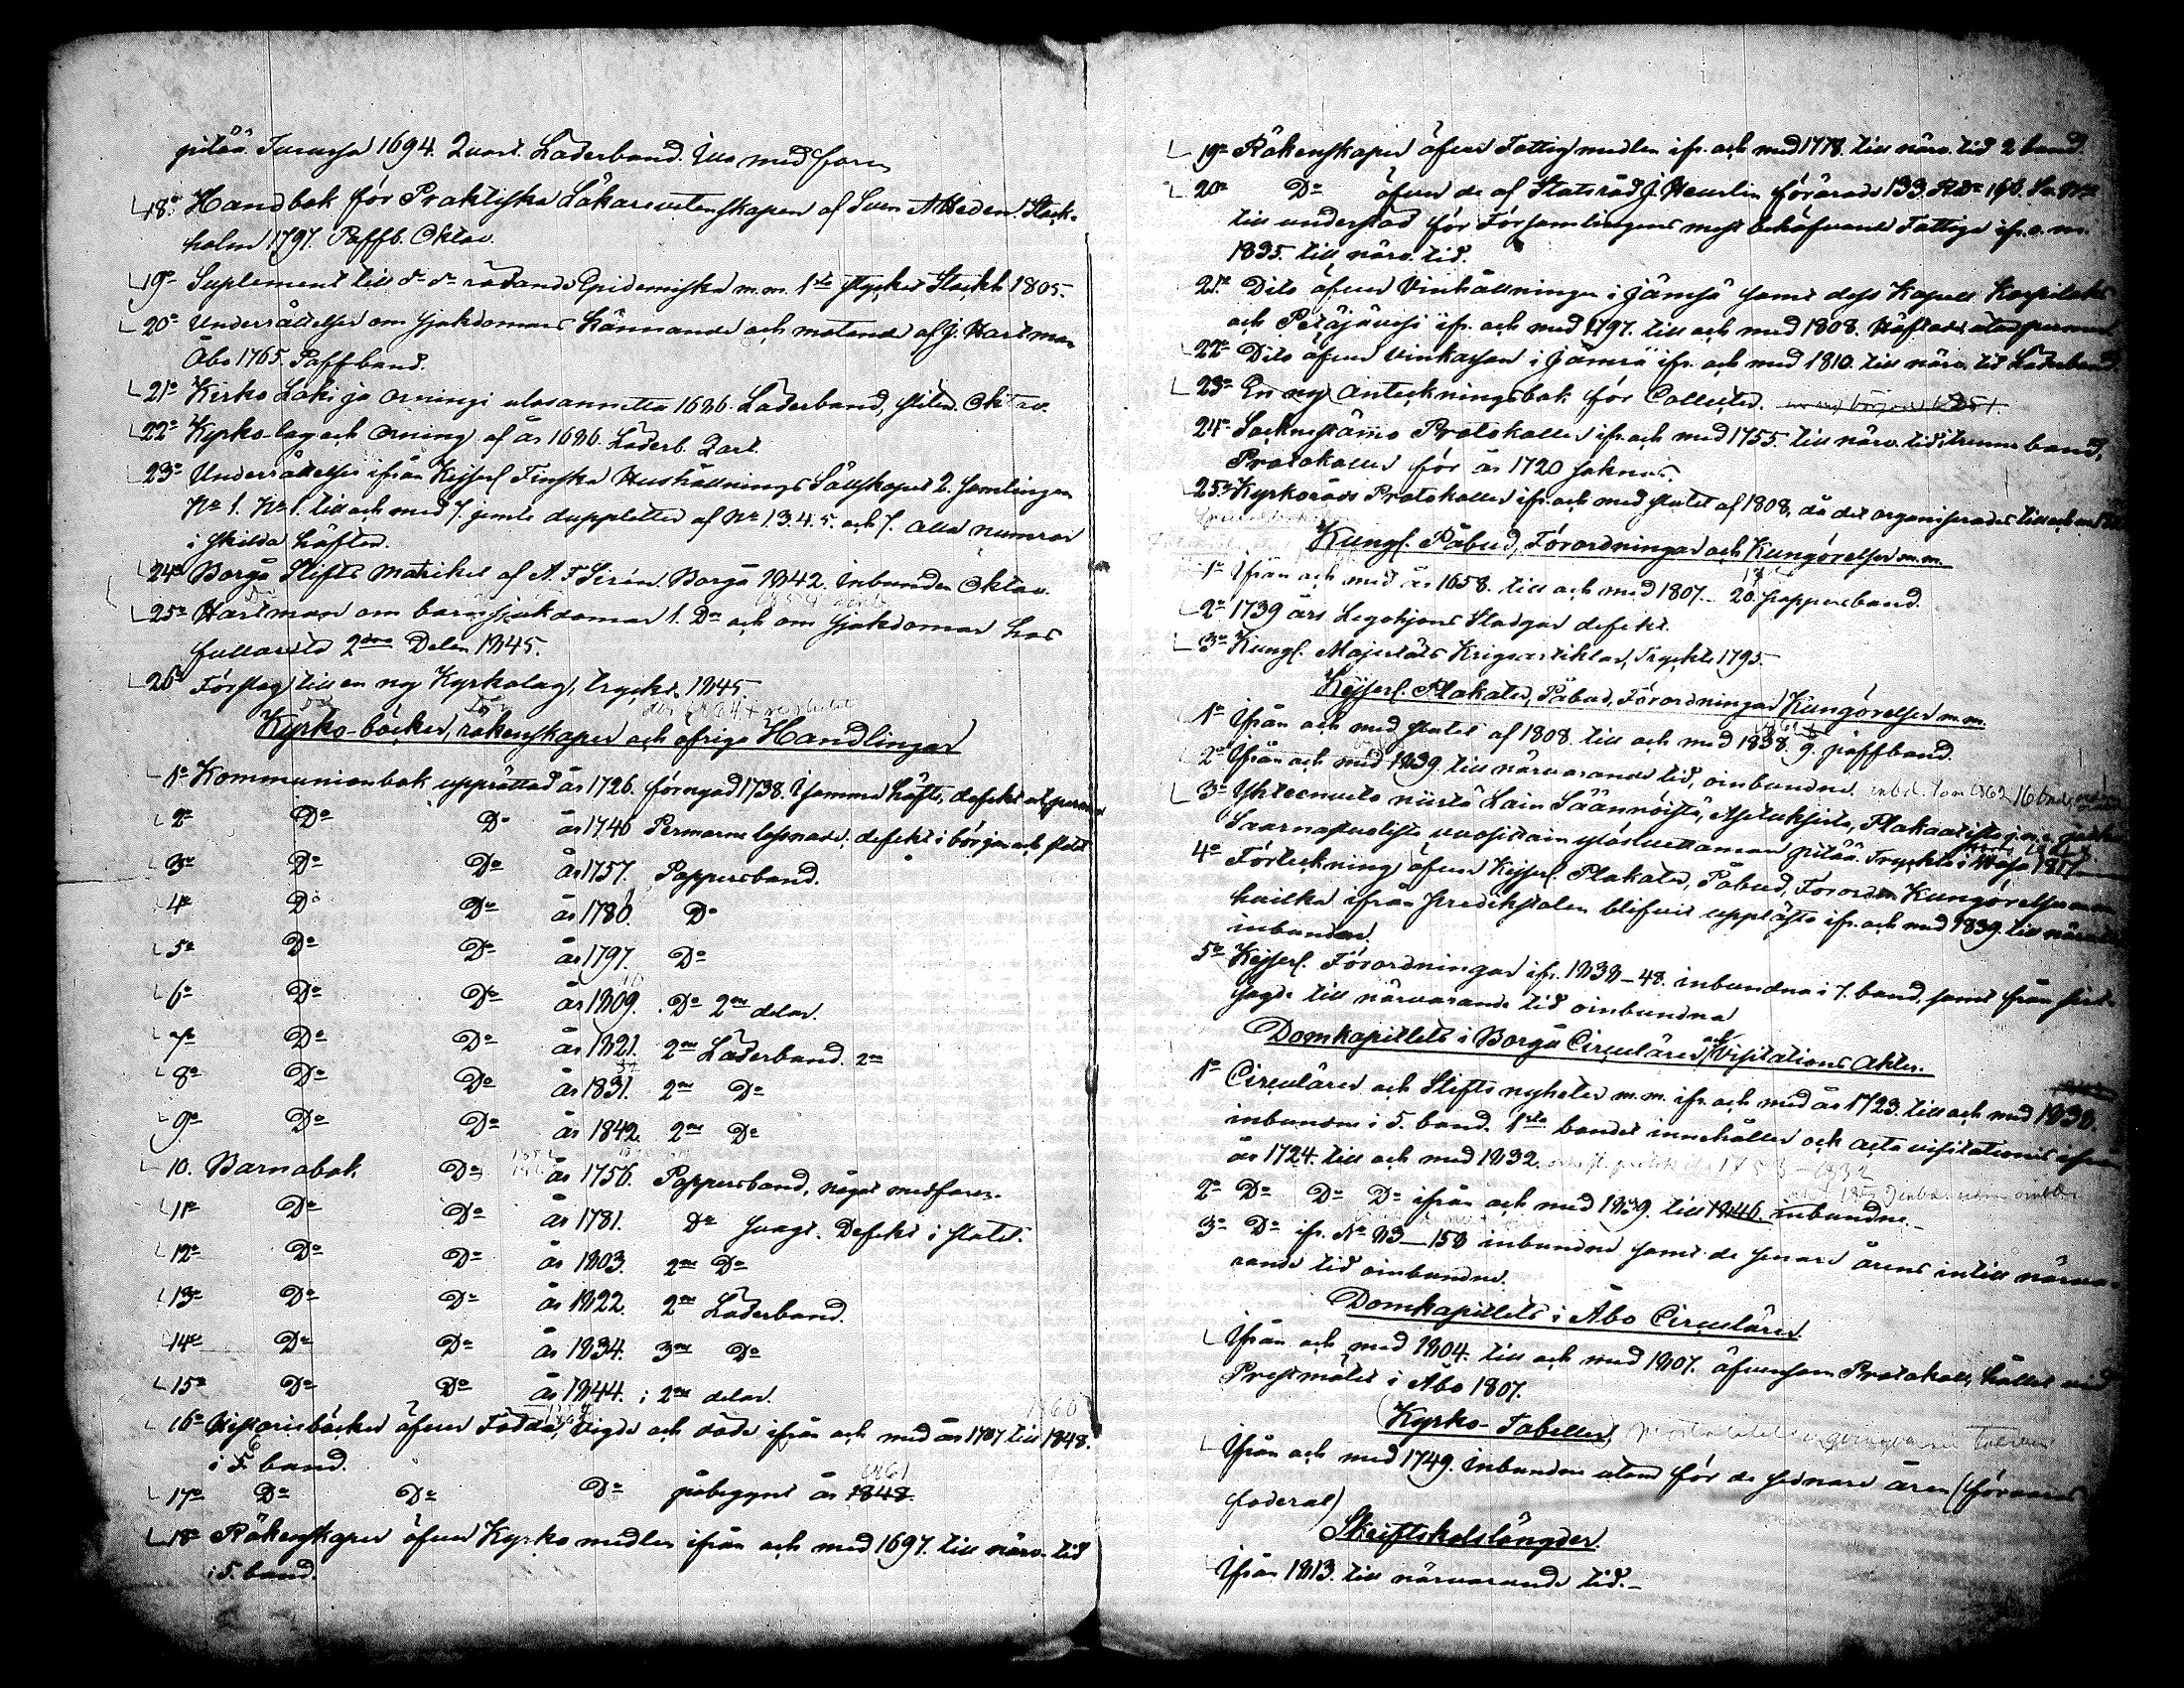 pitää. Turussa 1694. Quart. Läderband. Illa medfaren
18o Handbok för Praktiska Läkarevetenskapen af Sven A Heden. Stock-
holm 1797. Paffb. Oktav.
19o Suplement till do do rörande Epidemiska m.m. 1sta stycket Stockh 1805.
20o Underrättelser om sjukdomars kännande och motande af J. Hartman
Åbo 1765. Paffband.
21o Kirko Laki ja Ordningi ulosannettu 1686. Läderband, sliten. Oktav.
22o Kyrko-lag och Ordning af år 1686. Läderb. Qart.
23o Underrättelser ifrån Kejserl. Finska Hushållnings Sällskapet 2. Samlingen
No 1. No 1. till och med 7. jemte duppletter af No 1.3.4.5. och 7. alla numror
i skilda häften.
24o Borgå Stifts Matrikel af A. F. Sirén. Borgå 1842. Inbunden Oktav.
25o Hartman om barnsjukdomar 1. Do och om sjukdomar hos
fullväxta 2dra Delen 1845.
26o Förslag till en ny Kyrkolag, tryckt 1845.
Kyrko-böcker, räkenskaper och öfriga Handlingar
1o Kommunionbok upprättad år 1726. förnyad 1738. i samma häfte, defekt
2o Do Do år 1746 Permarne lossnade, defekt i början och slutet
3o Do Do år 1757. Pappersband.
4o Do Do år 1786. Do
5o Do Do år 1797. Do
6o Do Do år 1809. Do 2ne delar.
7o Do Do år 1821. 2ne Läderband.
8o Do Do år 1831. 2ne Do
9o Do Do år 1842. 2ne Do
10. Barnabok Do år 1756. Pappersband, något medfaren.
11o Do Do år 1781. Do svagt. Defekt i slutet.
12o Do Do år 1803. 2ne Do
13o Do Do år 1822. 2ne Läderband.
14o Do Do år 1834. 3ne Do
15o Do Do år 1844. i 2ne delar.
1860
16o Historieböcker öfver Födda, Vigde och döde ifrån och med år 1707 till 1848.
i 5 band.
1861
17o Do Do Do påbegynt år 1848.
18o Räkenskaper öfver Kyrko medlen ifrån och med 1697. till närv. tid
i 5. band.
19o Räkenskaper öfver Fattig medlen ifr. och med 1778. till närv. tid 2 band.
20o Do öfver de af Statsråd J. Heurlin förärade 133. Rdr
till understöd för Församlingens mest behöfvande Fattiga ifr. o. m.
1835. till närv. tid.
21o Dito öfver Vinhållningen i Jämsä samt dess Kapell Korpilaks
och Petäjävesi ifr. och med 1797. till och med 1808. Häftade utan permar
22o Dito öfver Vinkassan i Jämsä ifr. och med 1810. till närv. tid Läderband.
23o En ny Anteckningsbok för Collecter.
24o Sockenstämo Protokoller ifr. och med 1755. till närv. tid i trenne band,
Protokoller för år 1720 saknas.
25o Kyrkoråds Protokoller ifr. och med slutet af 1808, då det organiserades till och
Kungl. Påbud, Förordningar och Kungörelser m.m.
1o Ifrån och med år 1658. till och med 1807. 20. pappersband.
2o 1739 års Legohjons Stadgar defekt.
3o Kungl. Majestäts Krigsartiklar, tryckt 1795.
Kejserl. Plakater, Påbud, Förordningar Kungörelser m.m.
1o Ifrån och med slutet af 1808. till och med 1838. 9. paffband.
2o Ifrån och med 1839. till närvarande tid, oinbundne.
3o Yhteenveto niistä Lain Säännöistä, Asetuksista, Plakaatista
Saarnastuolista vuosittain ylösluettaman pitää. Tryckt i
4o Förteckning öfver Kejserl. Plakater, Påbud, Förordn Kungörelser
hvilka ifrån predikstolen blifvit uppläste ifr. och med 1839. till närv.
inbunden.
5o Kejserl. Förordningar ifr. 1838-48. inbundna i 7. band, samt från sist-
sagde till närvarande tid oinbundna
Domkapitlets i Borgå Circulärer och Visitations Akter.
1o Circulärer och Stifts nyheter m.m. ifr. och med år 1723. till och med 1838.
inbundne i 5. band. 1sta bandet innehåller ock acta visitationis ifrån
år 1724. till och med 1832.
2o Do Do Do ifrån och med 1839. till 1846. inbundne.
3o Do ifr. No 83-158 inbundne samt de senare årens intill närva-
rande tid oinbundne.
Domkapitlets i Åbo Circulärer.
Ifrån och med 1804. till och med 1807. äfvensom Protokoll, hållet vid
Prestmötet i Åbo 1807.
Kyrko-Tabeller
Ifrån och med 1749. Inbundne utom för de sednare åren (förvaras
foderal)
Skriftskolslängder.
Ifrån 1813. till närvarande tid.